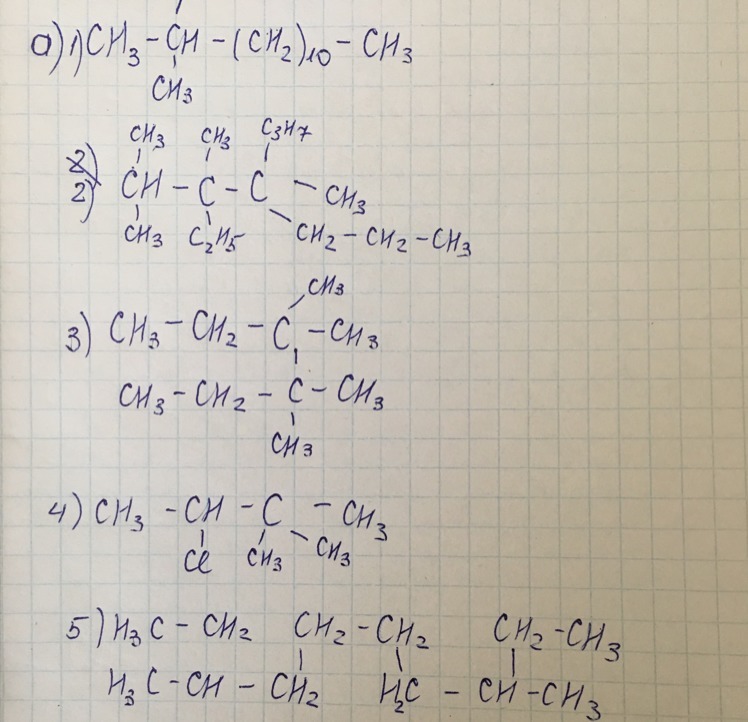 а) 1) CH3 - CH - (CH2)10 - CH3
CH3
CH3 CH3 C3H7
2)
2) CH - C - C - CH3
CH3 C2H5 CH2 - CH2 - CH3
CH3
3) CH3 - CH2 - C - CH3
CH3 - CH2 - C - CH3
CH3
4) CH3 - CH - C - CH3
Cl CH3 CH3
5) H3C - CH2 CH2 - CH2 CH2 - CH3
H3C - CH - CH2 H2C - CH - CH3